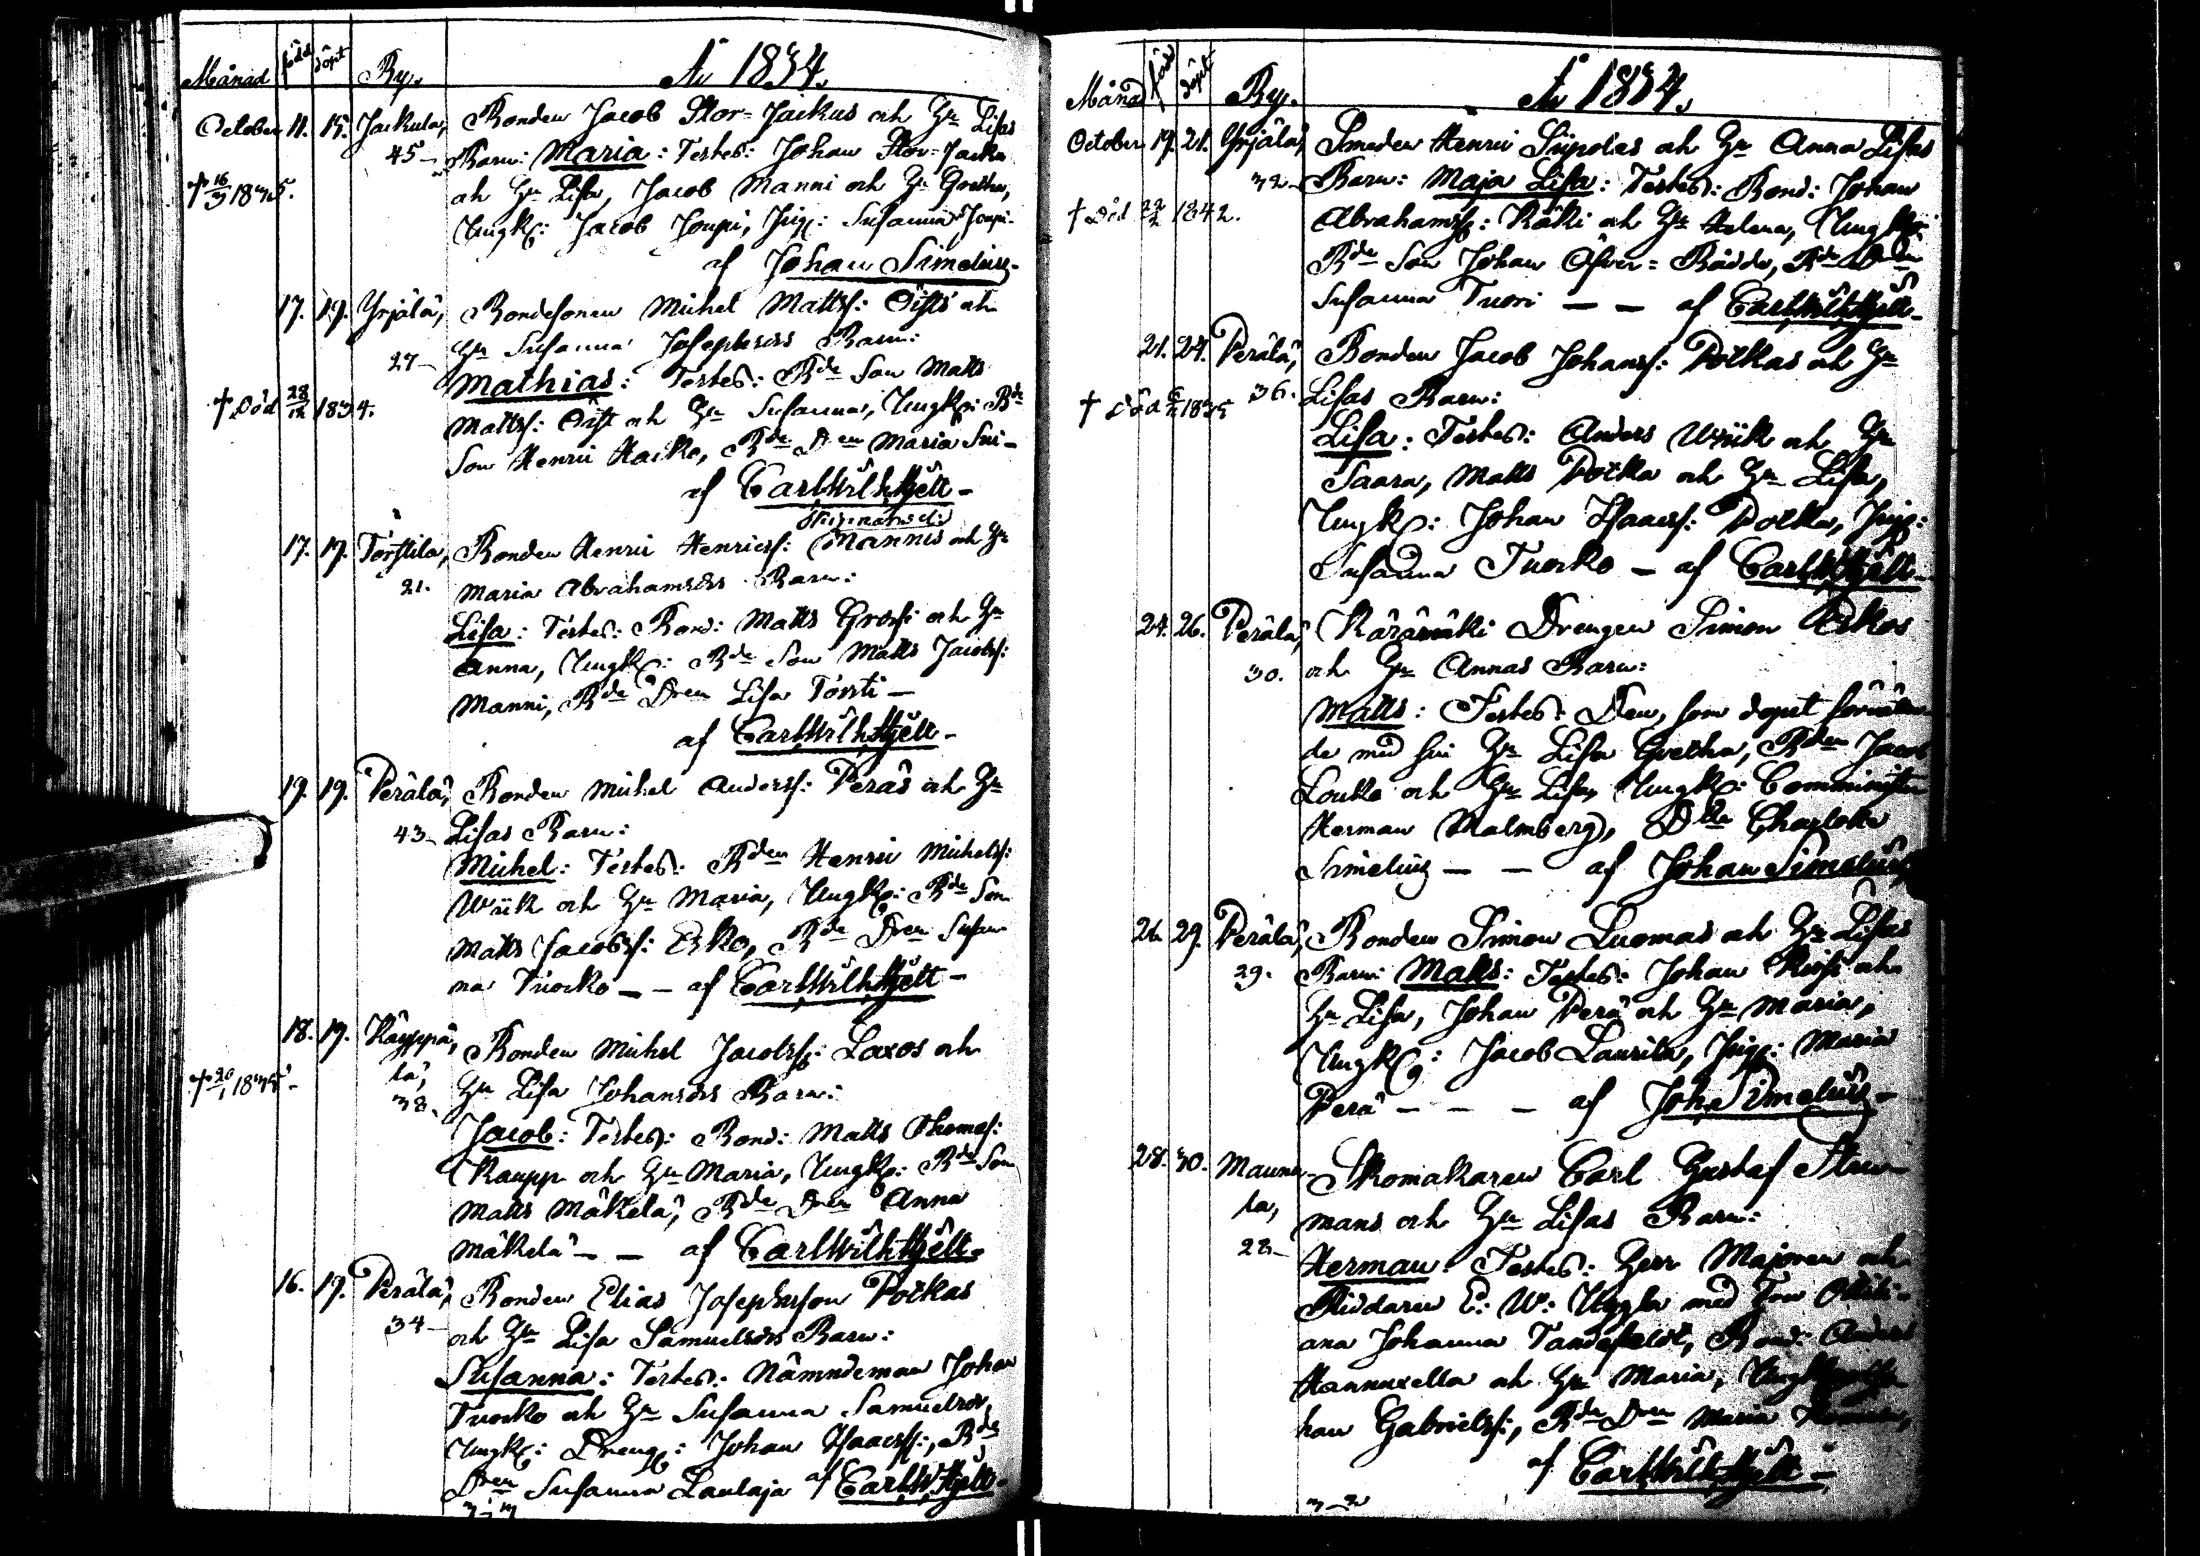 Månad född döpt By. År 1834.
October 11. 15. Jackula, Bonden Jacob Stor-Jackus och Hu Lisas
45- Barn: Maria: Testes: Johan Stor-Jacku
† 16/3 1835. och Hu Lisa, Jacob Manni och Hu Gretha,
Ungk: Jacob Joupi, Pig: Susanna Joupi-
af Johan Simelius-
17. 19. Yrjälä, Bondesonen Michel Matts: Öists och
27- Hu Susanna Josephsdrs Barn:
Mathias: Testes: Bde Son Matts
† Död 28/12 1834. Matts: Öist och Hu Susanna, Ungk: Bde
Son Henric Kacko, Bde Dren Maria Sui-
af Carl Wilh Hjelt-
17. 19. Törstila, Bonden Henric Henrics: Mannis och Hu
21. Maria Abrahamsdrs Barn:
Lisa: Testes: Bond: Matts Grossi och Hu
Anna, Ungk: Bde Son Matts Jacobs:
Manni, Bde Dren Lisa Törsti-
af Carl Wilh Hjelt-
19. 19. Perälä, Bonden Michel Anders: Peräs och Hu
43- Lisas Barn:
Michel: Testes: Bden Henric Michels:
Wiik och Hu Maria, Ungk: Bde Son
Matts Jacobs: Esko, Bde Dren Susan
na Tuorko -- af Carl Wilh Hjelt-
18. 19. Kauppi Bonden Michel Jacobs: Laxos och
† 20/1 1835- la, Hu Lisa Johansdrs Barn:
38. Jacob: Testes: Bond: Matts Thomas:
Kaupp och Hu Maria, Ungk: Bde Son
Matts Mäkelä, Bde Dren Anna
Mäkelä -- af Carl Wilh Hjelt-
16. 19. Perälä, Bonden Elias Josephsson Potkas
34- och Hu Lisa Samuelsdrs Barn:
Susanna: Testes: Nämndeman Johan
Tuorko och Hu Susanna Samuelsdr,
Ungk: Dreng: Johan Isaacs:, Bde
Dren Susanna Laulaja af Carl W. Hjelt-
Månad född döpt By. År 1834.
October 19. 21. Yrjälä, Smeden Henric Siipolas och Hu Anna Lisas
32- Barn: Maja Lisa: Testes: Bond: Johan
† Död 22/2 1842. Abrahams: Räki och Hu Helena, Ungk:
Bde Son Johan Öfver-Rådde, Bde Dren
Susanna Tuori -- af Carl Wilh Hjelt-
21. 24. Perälä, Bonden Jacob Johans: Potkas och Hu
† Död 1835 36. Lisas Barn:
Lisa: Testes: Anders Wiik och Hu
Saara, Matts Potka och Hu Lisa,
Ungk: Johan Isaacs: Potka, Pig:
Susanna Tuorko - af Carl W Hjelt-
24. 26. Perälä, Karamäki Drengen Simon Eskos
30. och Hu Annas Barn:
Matts: Testes: Den, som döpt
de med sin Hu Lisa Gretha, Bden Jacob
Louko och Hu Lisa, Ungk: Comminister
Herman Malmberg, Charlotta
Simelius -- af Johan Simelius,
26. 29. Perälä, Bonden Simon Luomas och Hu Lisas
29. Barn: Matts: Testes: Johan och
Hu Lisa, Johan Perä och Hu Maria,
Ungk: Jacob Laurila, Pig: Maria
Perä --- af Joh Simelius-
28. 30. Mauna- Skomakaren Carl Gustaf Sten
la, mans och Hu Lisas Barn:
28- Herman: Testes: Herr Majoren och
Riddaren C: W: Uggla med Fru
ana Johanna Tandefeldt, Bond: Anders
Hannuxella och Hu Maria, Ungk
han Gabriels:, Bde Dren Maria
af Carl Wilh Hjelt-